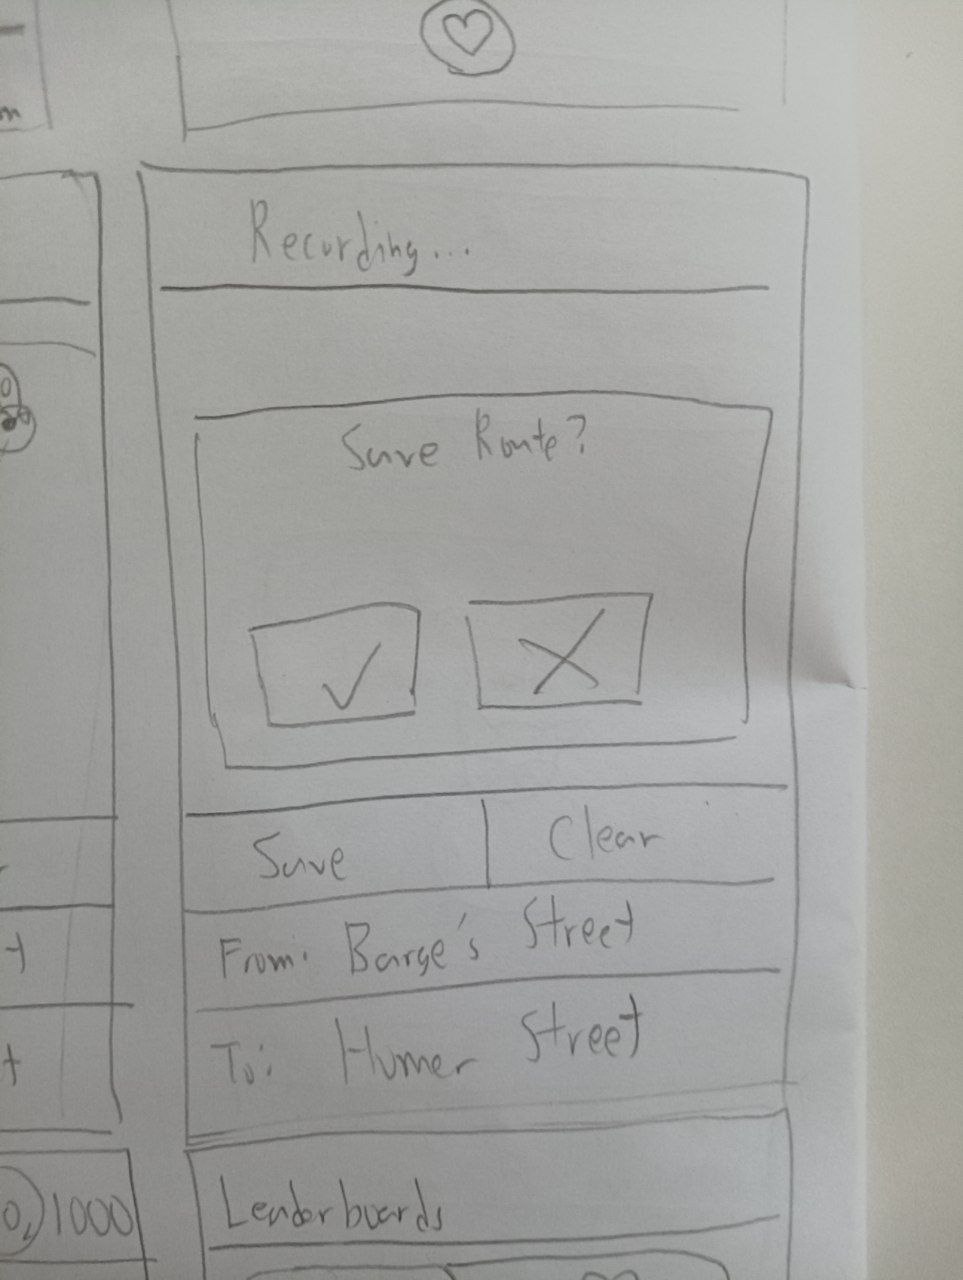 Recording...
Save Route?
Save
Clear
From: Barge's Street
To: Humer Street
1000
Leaderboards